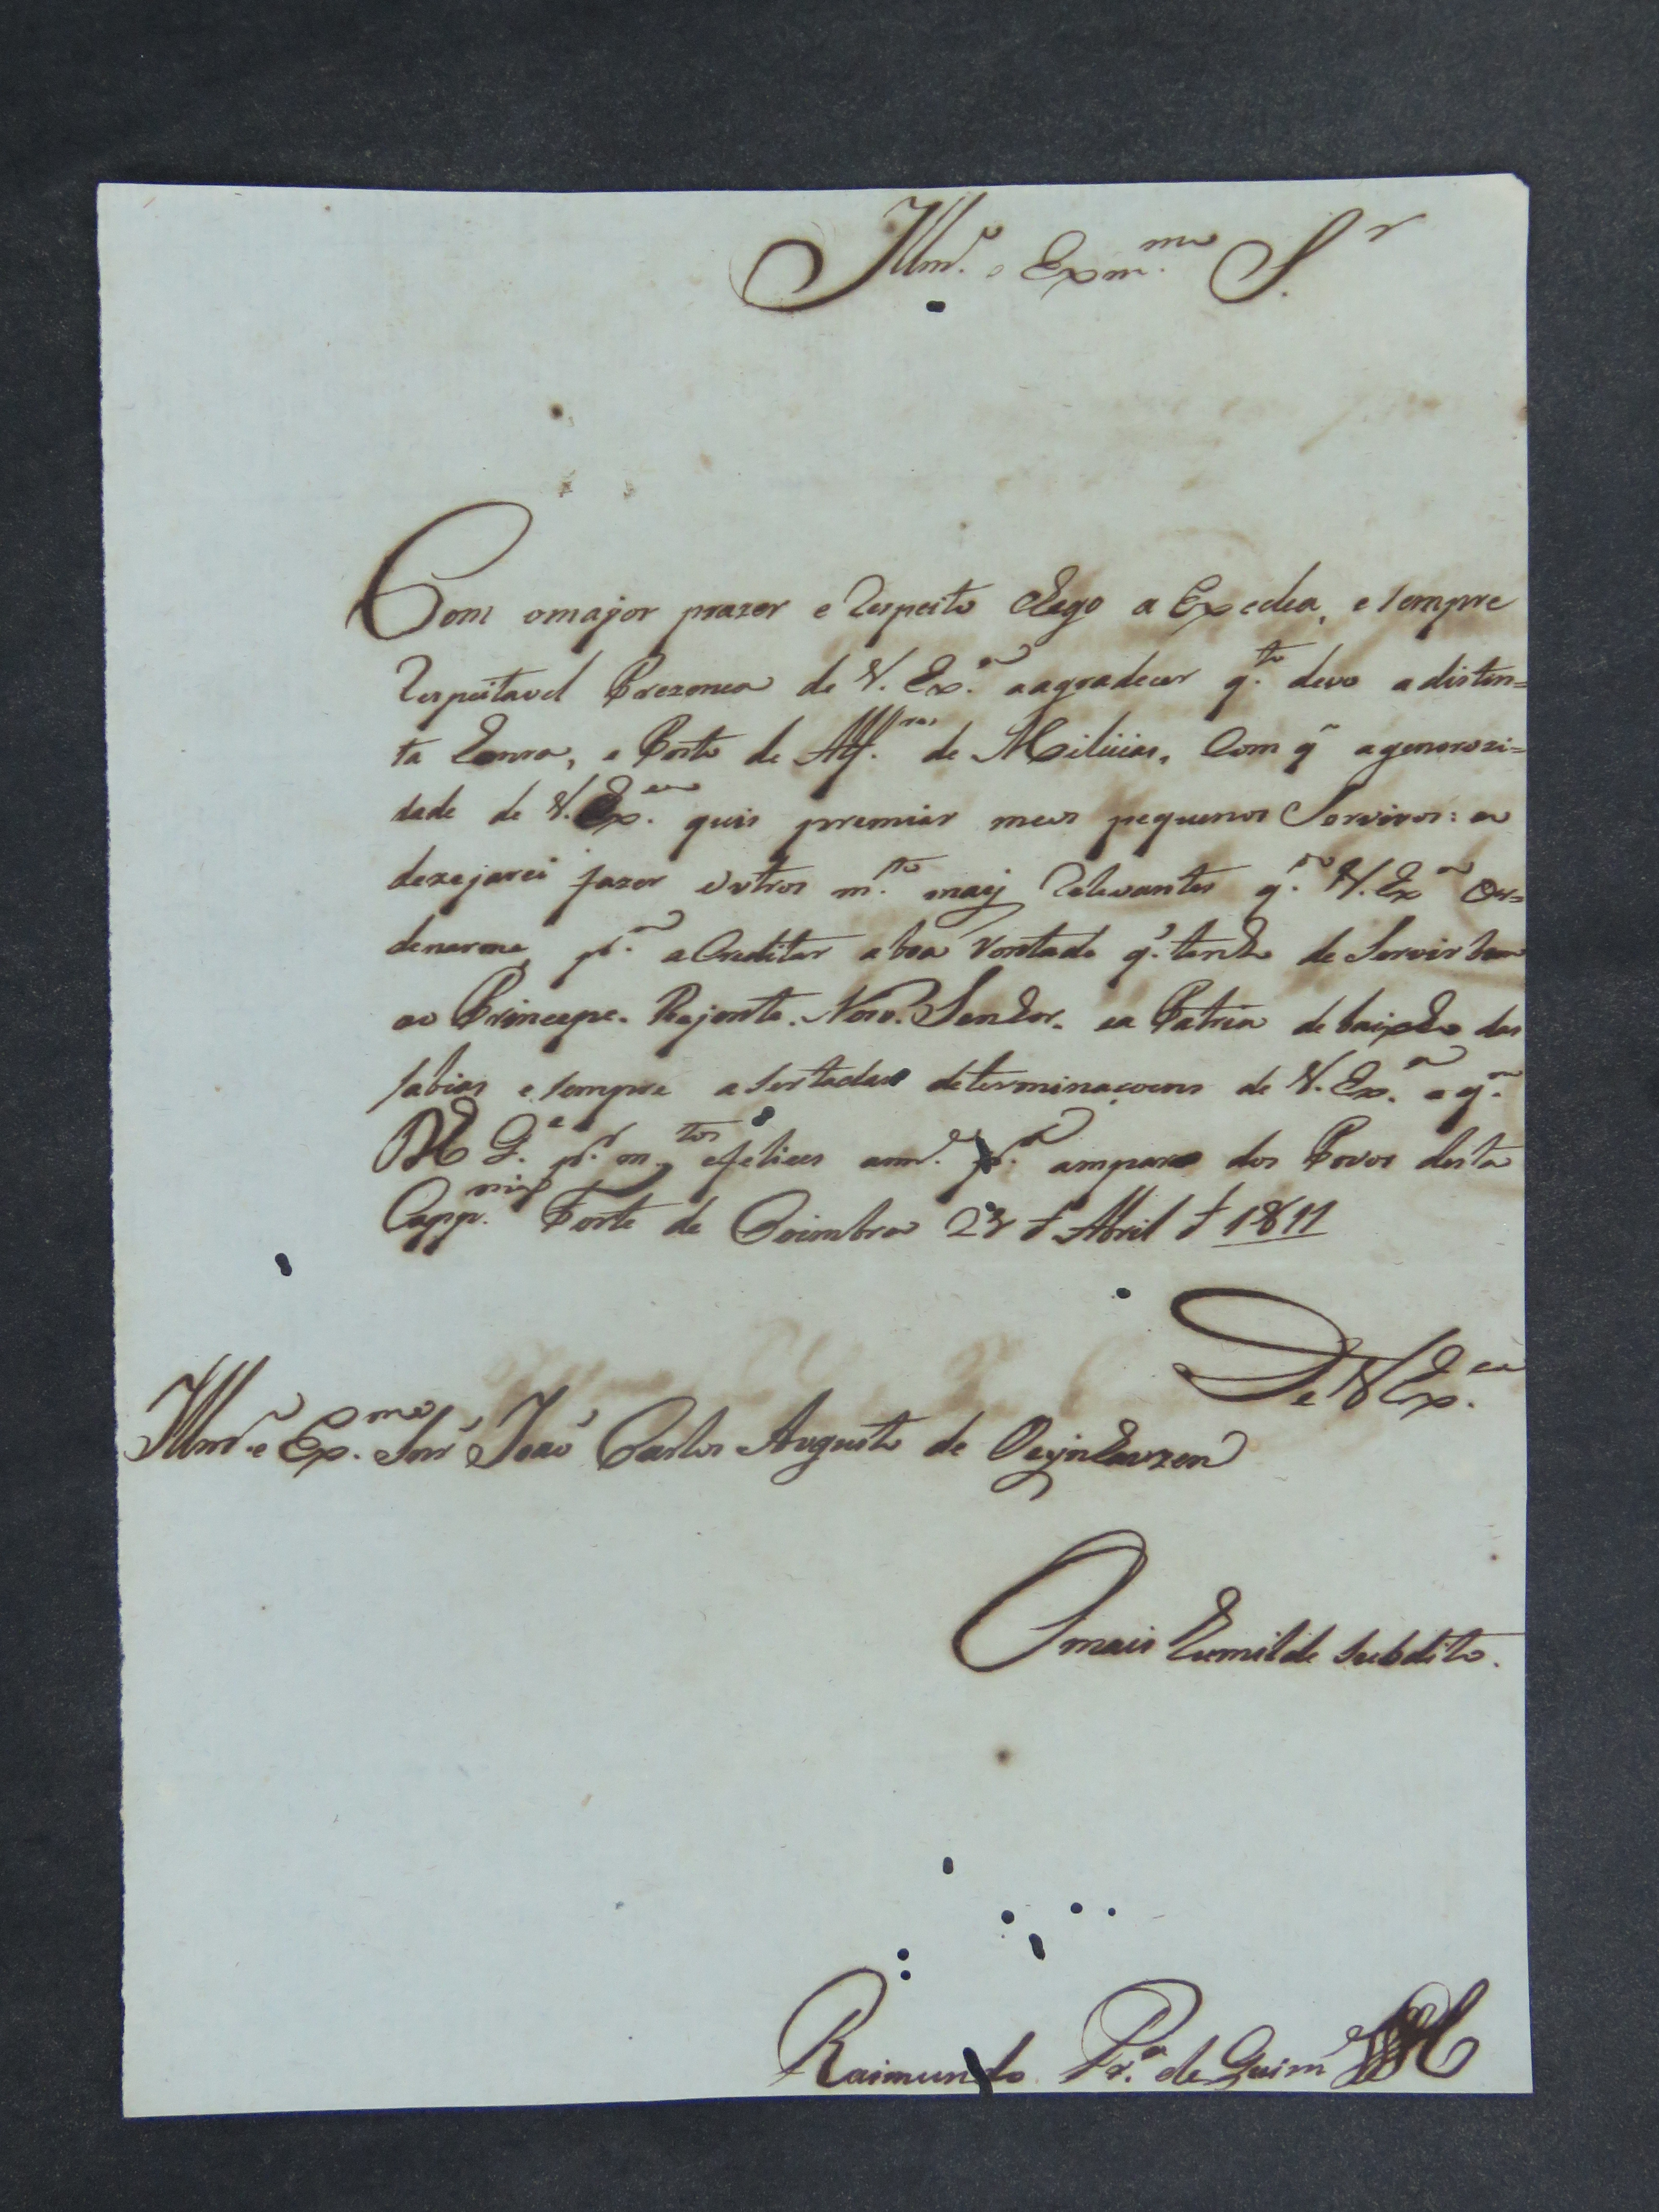 Illm.º e Exm.mo S.r
Com omajor prazer e Respeito chego a Excelca, e sempre
Respeitavel Prezenca de V. Ex.a aagradecer q.to devo a distin=
ta honra, e Posto de Alf.res de Milicias, Com q̃ agenerozi=
dade de V. Ex.cia quis premiar meos pequenos Servisos: eu
dezejarei fazer outros m.to maij Relevantes q.do V. Ex.a Or=
denarme, p.a aCreditar aboa Vontade q.' tenho de Servir bem
ao Principe. Rejente. Noso. Senhor. ea Patria de baixho das
sabias e sempre asertadas determinaçoens de V. Ex.a a q.m
D.s G.e p.r m.tos efelices ann.s p.a amparo dos Povos desta
Capp.nia Forte de Coimbra 23 d' Abril d' 1811
De V Ex.cia
Illm.º e Ex.mo Snr' João Carlos Augusto de Oeÿnhauzen
O mais humilde subdito.
Raimundo Pr.a de Guim.es